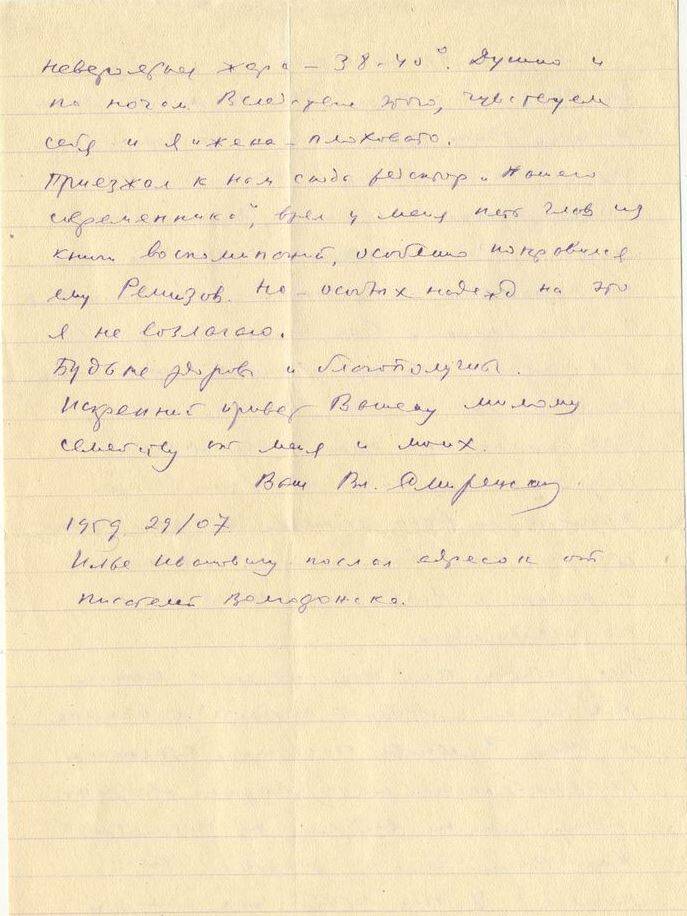 невероятная жара – 38-40°. Душно и
по ночам. Вследствие этого, чувствуем
себя и я и жена – плоховато.
Приезжал к нам сюда редактор „Нашего
современника“, взял у меня пять глав из
книги воспоминаний, особенно понравился
ему Ремизов. Но – особых надежд на это
я не возлагаю.
Будьте здоровы и благополучны.
Искренний привет Вашему милому
семейству от меня и моих.
Ваш Вл.
1959 29/07
Илье Ивановичу послал адресок от
писателей Волгодонска.